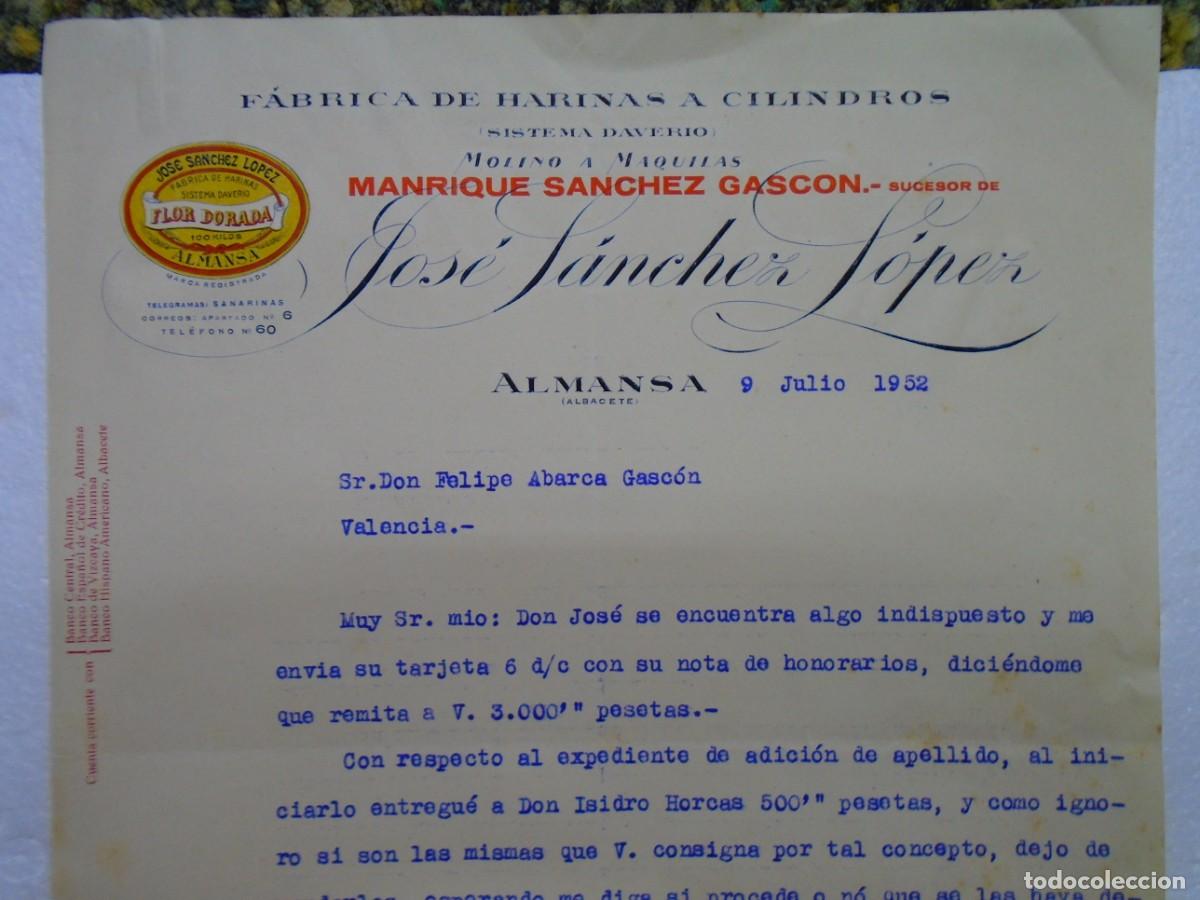 FÁBRICA DE HARINAS A CILINDROS
(SISTEMA DAVERIO)
MOLINO A MAQUILAS
MANRIQUE SANCHEZ GASCON.- SUCESOR DE
José Sánchez López
JOSE SANCHEZ LOPEZ
FABRICA DE HARINAS
SISTEMA DAVERIO
FLOR DORADA
100 KILOS
ALMANSA
MARCA REGISTRADA
TELEGRAMAS: SANARINAS
CORREOS: APARTADO Nº 6
TELÉFONO Nº 60
ALMANSA 9 Julio 1952
(ALBACETE)
Cuenta corriente con
Banco Central, Almansa
Banco Español de Crédito, Almansa
Banco de Vizcaya, Almansa
Banco Hispano Americano, Albacete
Sr.Don Felipe Abarca Gascón
Valencia.-
Muy Sr. mio: Don José se encuentra algo indispuesto y me
envia su tarjeta 6 d/c con su nota de honorarios, diciéndome
que remita a V. 3.000'" pesetas.-
Con respecto al expediente de adición de apellido, al ini-
ciarlo entregué a Don Isidro Horcas 500'" pesetas, y como igno-
ro si son las mismas que V. consigna por tal concepto, dejo de
esperando me diga si procede o nó que se las haya de-
todocoleccion